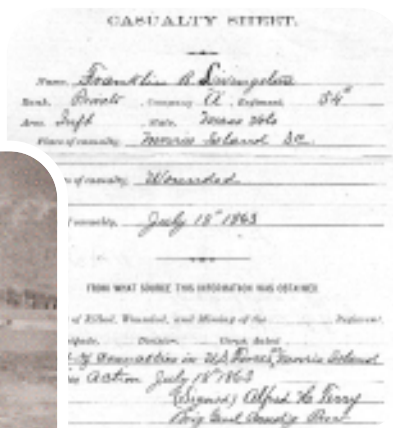 CASUALTY SHEET.
Name, Franklin R. Livingston
Rank, Private, Company A, Regiment, 54"
Arm, Inft, State, Mass Vols
Place of casualty, Morris Island
of casualty, Wounded
of casualty, July 18" 1863
FROM WHAT SOURCE THIS INFORMATION WAS OBTAINED.
of Killed, Wounded, and Missing of the Regiment,
Brigade, Division, Corps, dated
of Casualties in U.S. Forces, Morris Island
in action July 18" 1863
(Signed) Alfred H. Terry
Brig Genl Comdg Post